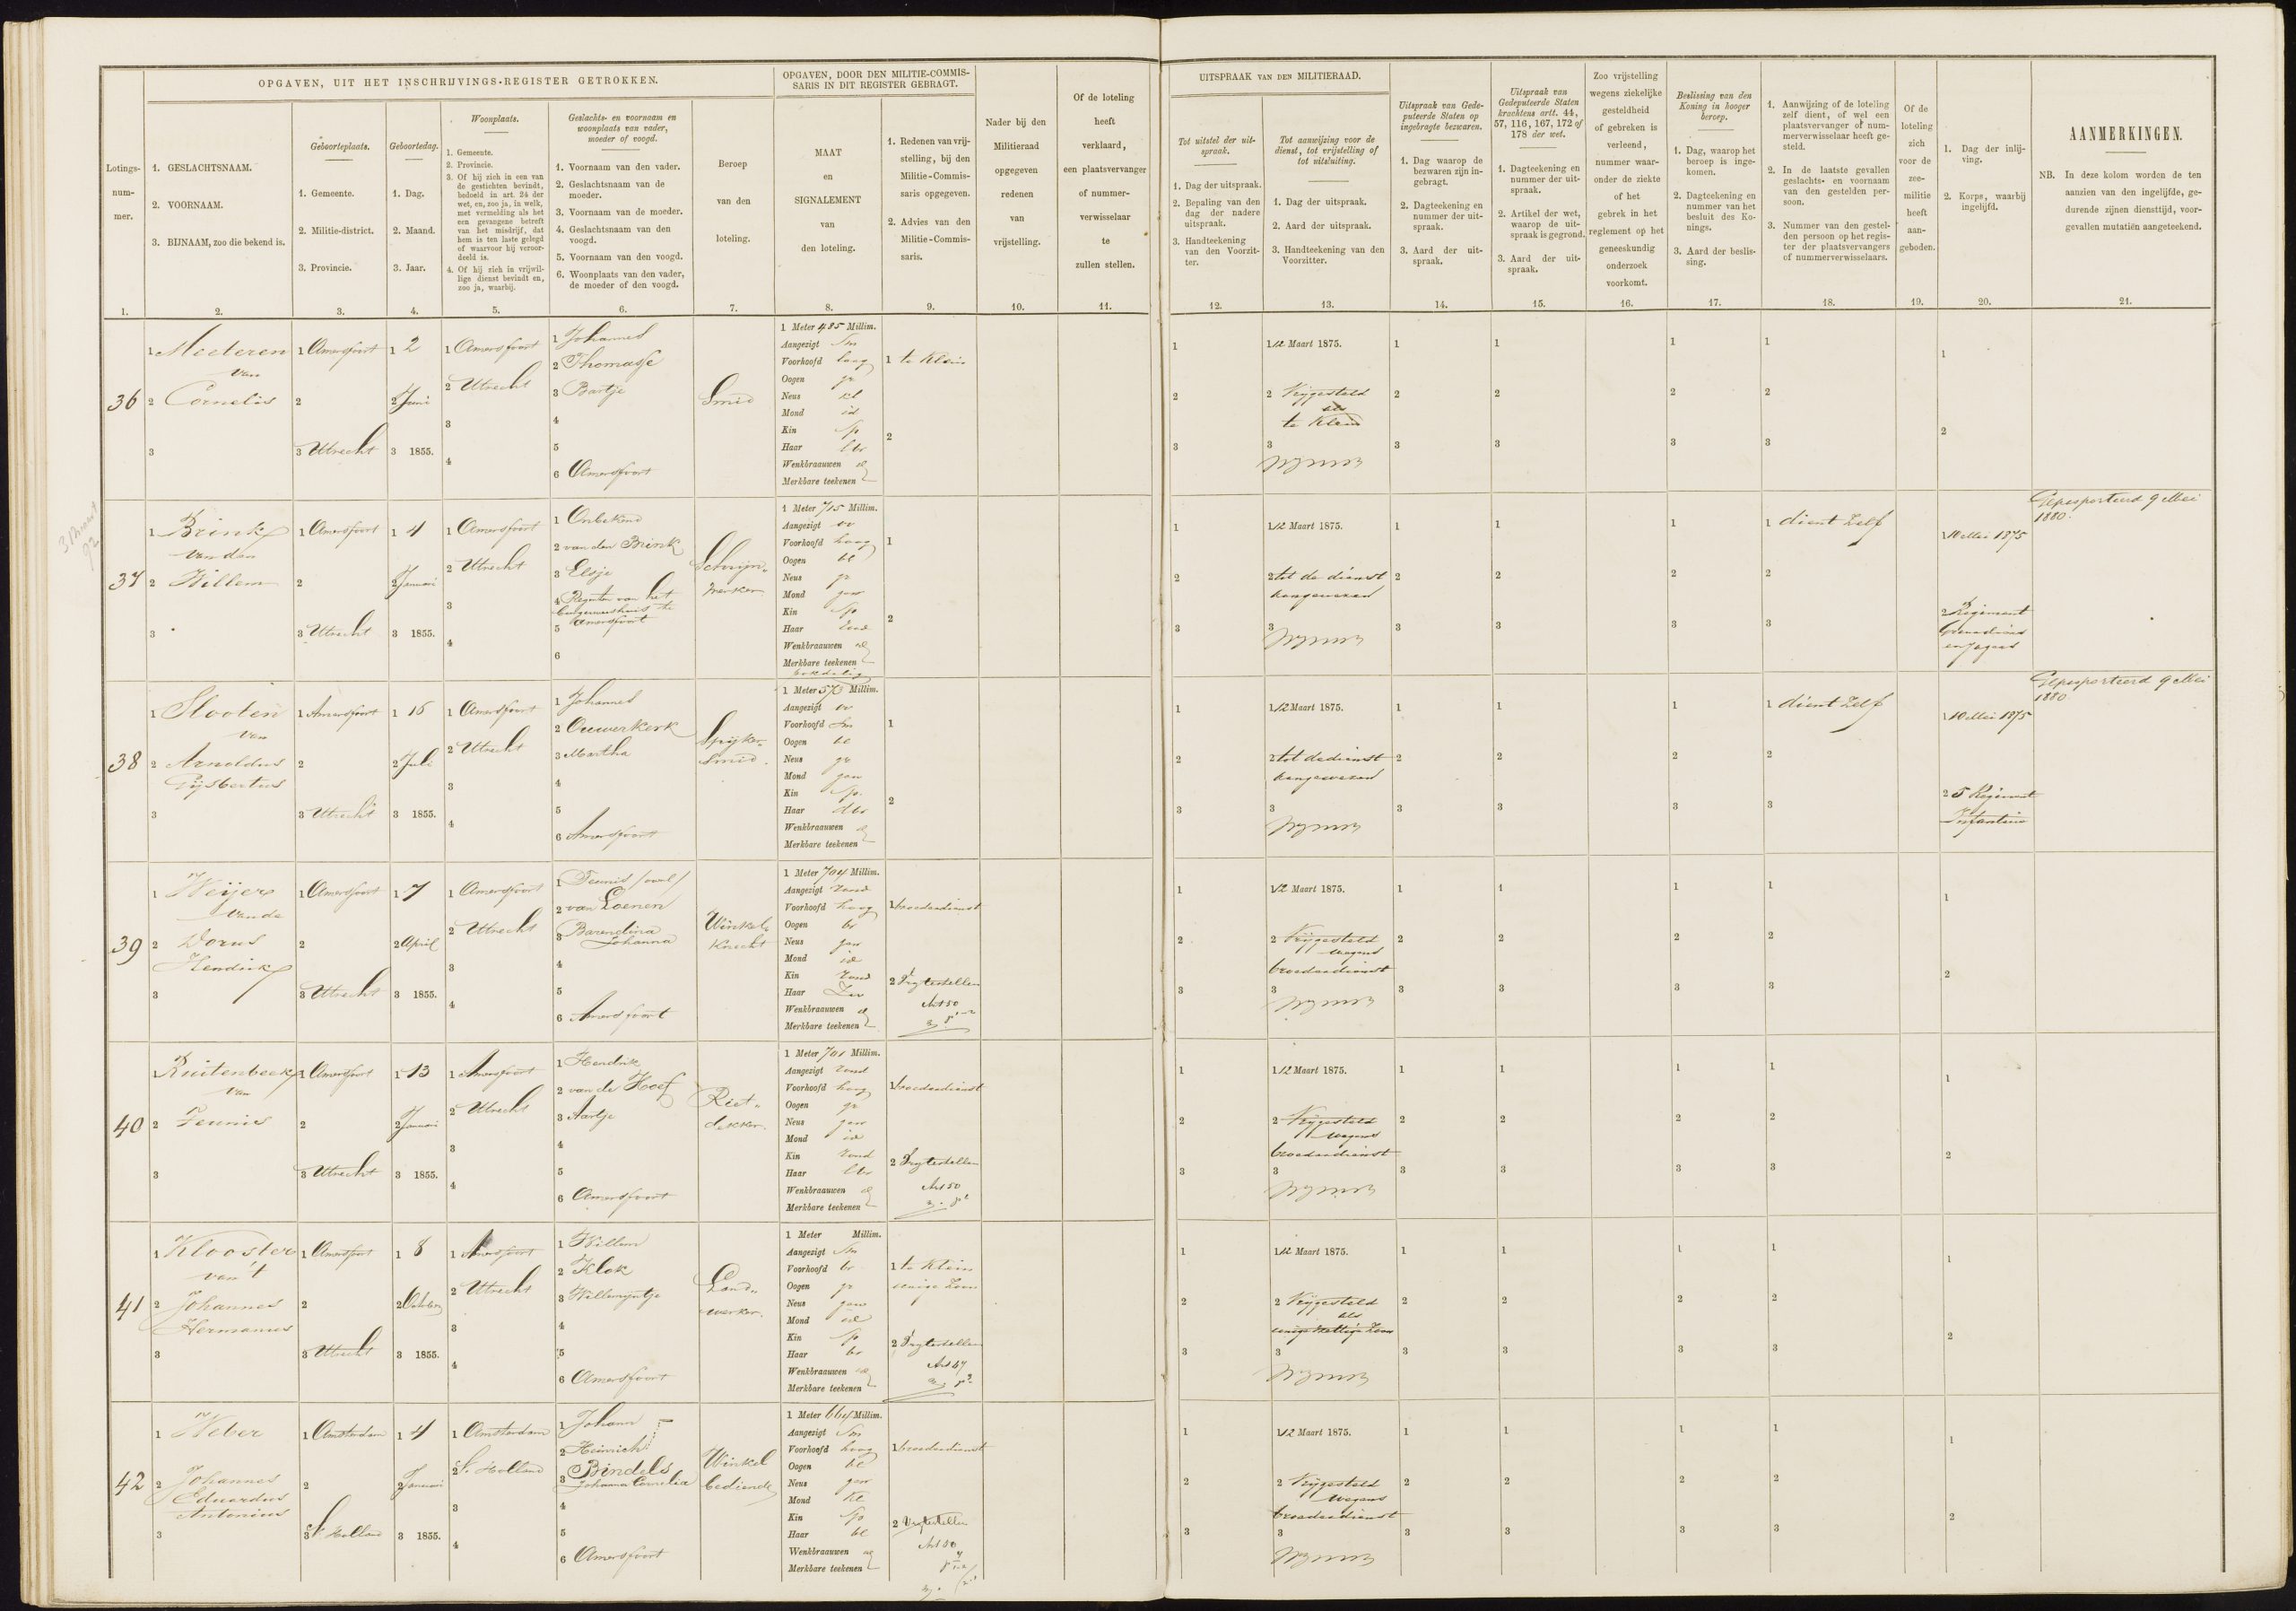 OPGAVEN, UIT HET INSCHRIJVINGS-REGISTER GETROKKEN.
OPGAVEN, DOOR DEN MILITIE-COMMIS-
SARIS IN DIT REGISTER GEBRAGT.
UITSPRAAK VAN DEN MILITIERAAD.
Lotings-
num-
mer.
1.
1. GESLACHTSNAAM.
2. VOORNAAM.
3. BIJNAAM, zoo die bekend is.
2.
Geboorteplaats.
1. Gemeente.
2. Militie-district.
3. Provincie.
3.
Geboortedag.
1. Dag.
2. Maand.
3. Jaar.
4.
Woonplaats.
1. Gemeente.
2. Provincie.
3. Of hij zich in een van
de gestichten bevindt,
bedoeld in art. 24 der
wet, en, zoo ja, in welk,
met vermelding als het
een gevangene betreft
van het misdrijf, dat
hem is ten laste gelegd
of waarvoor hij veroor-
deeld is.
4. Of hij zich in vrijwil-
lige dienst bevindt en,
zoo ja, waarbij.
5.
Geslachts- en voornaam en
woonplaats van vader,
moeder of voogd.
1. Voornaam van den vader.
2. Geslachtsnaam van de
moeder.
3. Voornaam van de moeder.
4. Geslachtsnaam van den
voogd.
5. Voornaam van den voogd.
6. Woonplaats van den vader,
de moeder of den voogd.
6.
Beroep
van den
loteling.
7.
MAAT
en
SIGNALEMENT
van
den loteling.
8.
1. Redenen van vrij-
stelling, bij den
Militie-Commis-
saris opgegeven.
2. Advies van den
Militie-Commis-
saris.
9.
Nader bij den
Militieraad
opgegeven
redenen
van
vrijstelling.
10.
Of de loteling
heeft
verklaard,
een plaatsvervanger
of nummer-
verwisselaar
te
zullen stellen.
11.
Tot uitstel der uit-
spraak.
1. Dag der uitspraak.
2. Bepaling van den
dag der nadere
uitspraak.
3. Handteekening
van den Voorzit-
ter.
12.
Tot aanwijzing voor de
dienst, tot vrijstelling of
tot uitsluiting.
1. Dag der uitspraak.
2. Aard der uitspraak.
3. Handteekening van den
Voorzitter.
13.
Uitspraak van Gede-
puteerde Staten op
ingebragte bezwaren.
1. Dag waarop de
bezwaren zijn in-
gebragt.
2. Dagteekening en
nummer der uit-
spraak.
3. Aard der uit-
spraak.
14.
Uitspraak van
Gedeputeerde Staten
krachtens artt. 44,
57, 116, 167, 172 of
178 der wet.
1. Dagteekening en
nummer der uit-
spraak.
2. Artikel der wet,
waarop de uit-
spraak is gegrond.
3. Aard der uit-
spraak.
15.
Zoo vrijstelling
wegens ziekelijke
gesteldheid
of gebreken is
verleend,
nummer waar-
onder de ziekte
of het
gebrek in het
reglement op het
geneeskundig
onderzoek
voorkomt.
16.
Beslissing van den
Koning in hooger
beroep.
1. Dag, waarop het
beroep is inge-
komen.
2. Dagteekening en
nummer van het
besluit des Ko-
nings.
3. Aard der beslis-
sing.
17.
1. Aanwijzing of de loteling
zelf dient, of wel een
plaatsvervanger of num-
merverwisselaar heeft ge-
steld.
2. In de laatste gevallen
geslachts- en voornaam
van den gestelden per-
soon.
3. Nummer van den gestel-
den persoon op het regis-
ter der plaatsvervangers
of nummerverwisselaars.
18.
Of de
loteling
zich
voor de
zee-
militie
heeft
aan-
geboden.
19.
1. Dag der inlij-
ving.
2. Korps, waarbij
ingelijfd.
20.
AANMERKINGEN.
NB. In deze kolom worden de ten
aanzien van den ingelijfde, ge-
durende zijnen diensttijd, voor-
gevallen mutatiën aangeteekend.
21.
36
1 Meeteren
van
2 Cornelis
3
1 Amersfoort
2
3 Utrecht
1 2
2 Juni
3 1855.
1 Amersfoort
2 Utrecht
3
4
1 Johannes
2 Thomasse
3 Bartje
4
5
6 Amersfoort
Smid
1 Meter 485 Millim.
Aangezigt Sm
Voorhoofd laag
Oogen gr
Neus kl
Mond id
Kin Sp
Haar lbr
Wenkbraauwen id
Merkbare teekenen
1 te Klein
2
1 12 Maart 1875.
2 Vrijgesteld
als
te Klein
3
37
1 Brink
van den
2 Willem
3
1 Amersfoort
2
3 Utrecht
1 4
2 Januari
3 1855.
1 Amersfoort
2 Utrecht
3
4
1 Onbekend
2 van den Brink
3 Elsje
4 Regenten van het
Burgerweeshuis te
5 Amersfoort
6
Schrijn-
werker
1 Meter 715 Millim.
Aangezigt ov
Voorhoofd hoog
Oogen bl
Neus gr
Mond gew
Kin Sp
Haar rood
Wenkbraauwen id
Merkbare teekenen
pokdalig
1
2
1 12 Maart 1875.
2 tot de dienst
aangewezen
3
1 dient Zelf
1 10 Mei 1875
2 Regiment
Grenadiers
en Jagers
Gepasporteerd 9 Mei
1880.
38
1 Slooten
van
2 Arnoldus
Gijsbertus
3
1 Amersfoort
2
3 Utrecht
1 15
2 Juli
3 1855.
1 Amersfoort
2 Utrecht
3
4
1 Johannes
2 Ouwerkerk
3 Martha
4
5
6 Amersfoort
Spijker-
smid.
1 Meter 573 Millim.
Aangezigt ov
Voorhoofd Sm
Oogen bl
Neus gr
Mond gew
Kin Sp.
Haar dbr
Wenkbraauwen id
Merkbare teekenen
1
2
1 12 Maart 1875.
2 tot de dienst
aangewezen
3
1 dient Zelf
1 10 Mei 1875
2 5 Regiment
Infanterie
Gepasporteerd 9 Mei
1880
39
1 Weijer
van de
2 Dorus
Hendrik
3
1 Amersfoort
2
3 Utrecht
1 7
2 April
3 1855.
1 Amersfoort
2 Utrecht
3
4
1 Teunis
2 van Loenen
3 Barendina
Johanna
4
5
6 Amersfoort
Winkel-
Knecht
1 Meter 704 Millim.
Aangezigt rond
Voorhoofd hoog
Oogen br
Neus gew
Mond id
Kin rond
Haar Zw
Wenkbraauwen id
Merkbare teekenen
1 broederdienst
2 Vrij te stellen
Art 50
1 12 Maart 1875.
2 Vrijgesteld
wegens
broederdienst
3
40
1 Ruitenbeek
van
2 Teunis
3
1 Amersfoort
2
3 Utrecht
1 13
2 Januari
3 1855.
1 Amersfoort
2 Utrecht
3
4
1 Hendrik
2 van de Hoef
3 Aartje
4
5
6 Amersfoort
Riet-
dekker.
1 Meter 701 Millim.
Aangezigt rond
Voorhoofd hoog
Oogen gr
Neus gew
Mond id
Kin rond
Haar lbr
Wenkbraauwen id
Merkbare teekenen
1 broederdienst
2 Vrij te stellen
Art 50
1 12 Maart 1875.
2 Vrijgesteld
wegens
broederdienst
3
41
1 Klooster
van 't
2 Johannes
Hermanus
3
1 Amersfoort
2
3 Utrecht
1 8
2 October
3 1855.
1 Amersfoort
2 Utrecht
3
4
1 Willem
2 Klok
3 Willemijntje
4
5
6 Amersfoort
Land-
werker.
1 Meter Millim.
Aangezigt Sm
Voorhoofd br
Oogen gr
Neus gew
Mond id
Kin Sp
Haar br
Wenkbraauwen id
Merkbare teekenen
1 te Klein
eenige Zoon
2 Vrij te stellen
Art 47
1 12 Maart 1875.
2 Vrijgesteld
als
eenige wettige Zoon
3
42
1 Weber
2 Johannes
Eduardus
Antonius
3
1 Amsterdam
2
3 N. Holland
1 4
2 Januari
3 1855.
1 Amsterdam
2 N. Holland
3
4
1 Johann
2 Heinrich
Bindels
3 Johanna Cornelia
4
5
6 Amersfoort
Winkel
bediende
1 Meter 664 Millim.
Aangezigt Sm
Voorhoofd hoog
Oogen bl
Neus gew
Mond Kl
Kin Sp
Haar bl
Wenkbraauwen id
Merkbare teekenen
1 broederdienst
2 Vrij te stellen
Art 50
1 12 Maart 1875.
2 Vrijgesteld
wegens
broederdienst
3